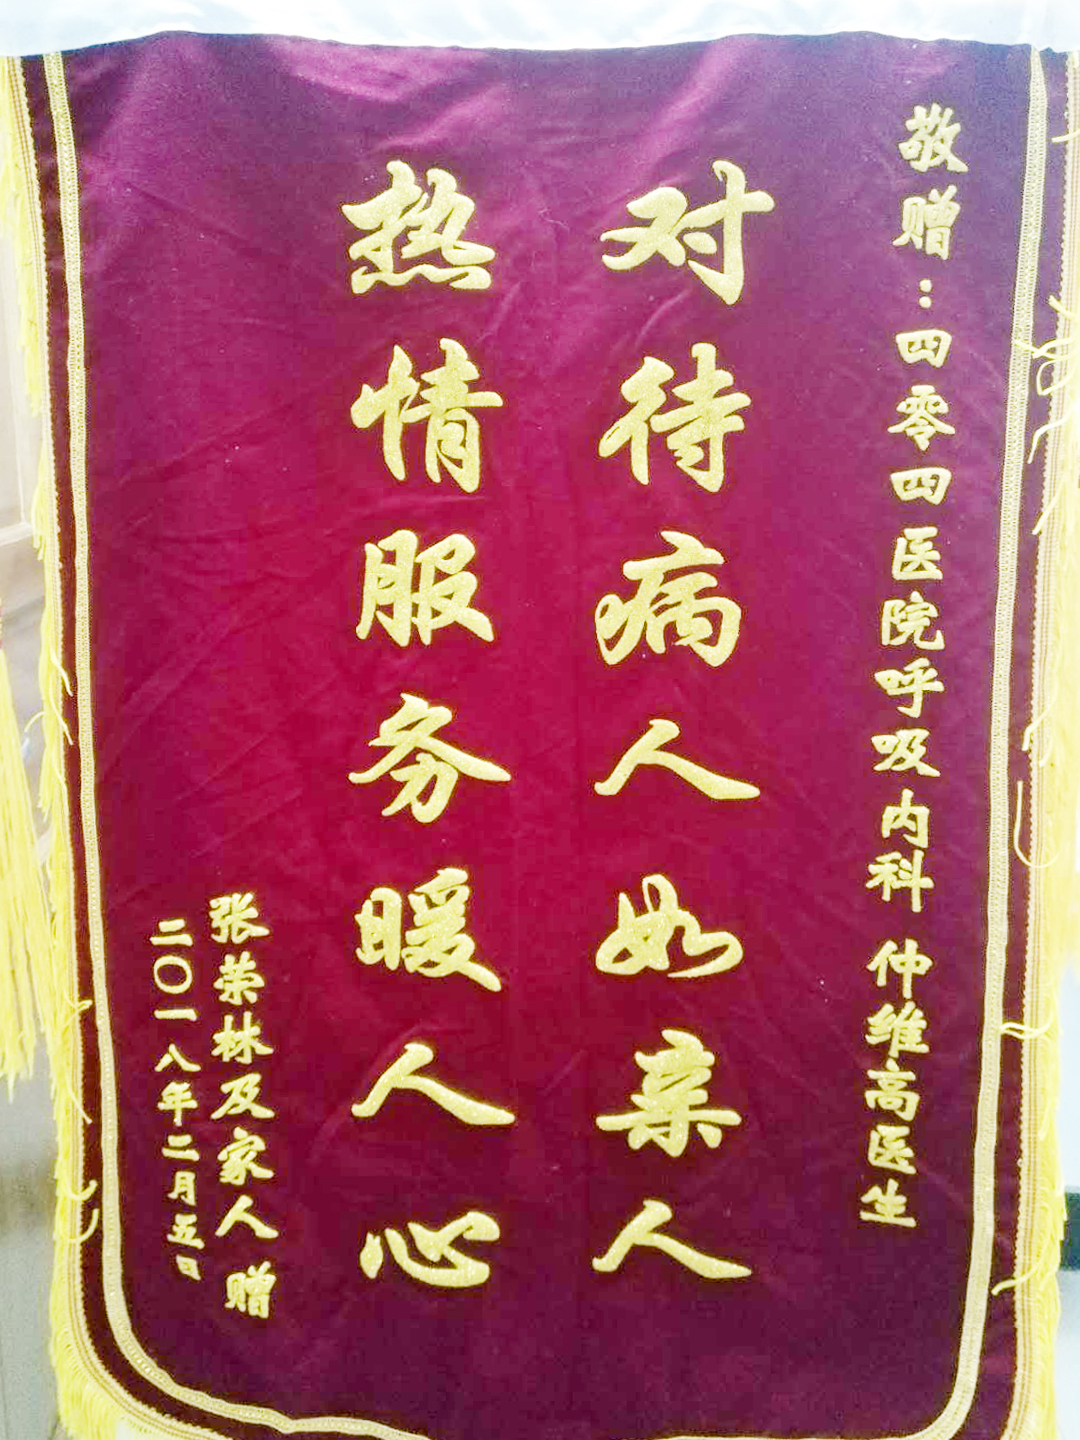 敬赠：四零四医院呼吸内科 仲维高医生
对待病人如亲人
热情服务暖人心
张荣林及家人 赠
二〇一八年二月五日